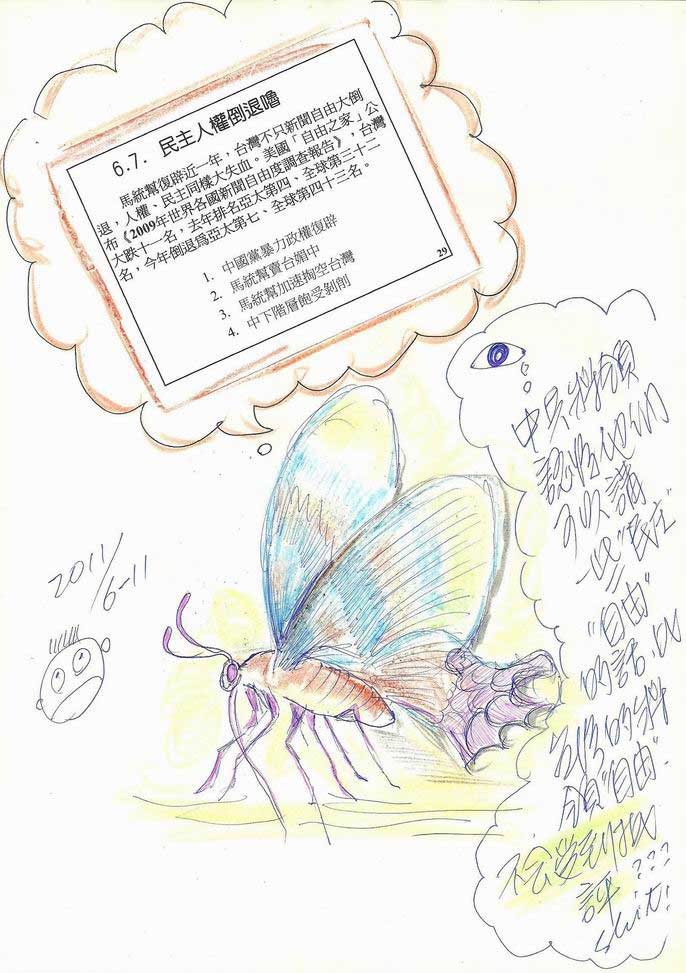 6.7. 民主人權倒退嚕
馬統幫復辟近一年，台灣不只新聞自由大倒
退，人權、民主同樣大失血。美國「自由之家」公
布《2009年世界各國新聞自由度調查報告》，台灣
大跌十一名，去年排名亞太第四、全球第三十二
名，今年倒退爲亞太第七、全球第四十三名。
1. 中國黨暴力政權復辟
2. 馬統幫賣台媚中
3. 馬統幫加速掏空台灣
4. 中下階層飽受剝削
29
中共
認為他們
可以講
一些"民主"
"自由"
的話，以
為
"自由".
不會受到批
評???
Shit!
2011/
6-11